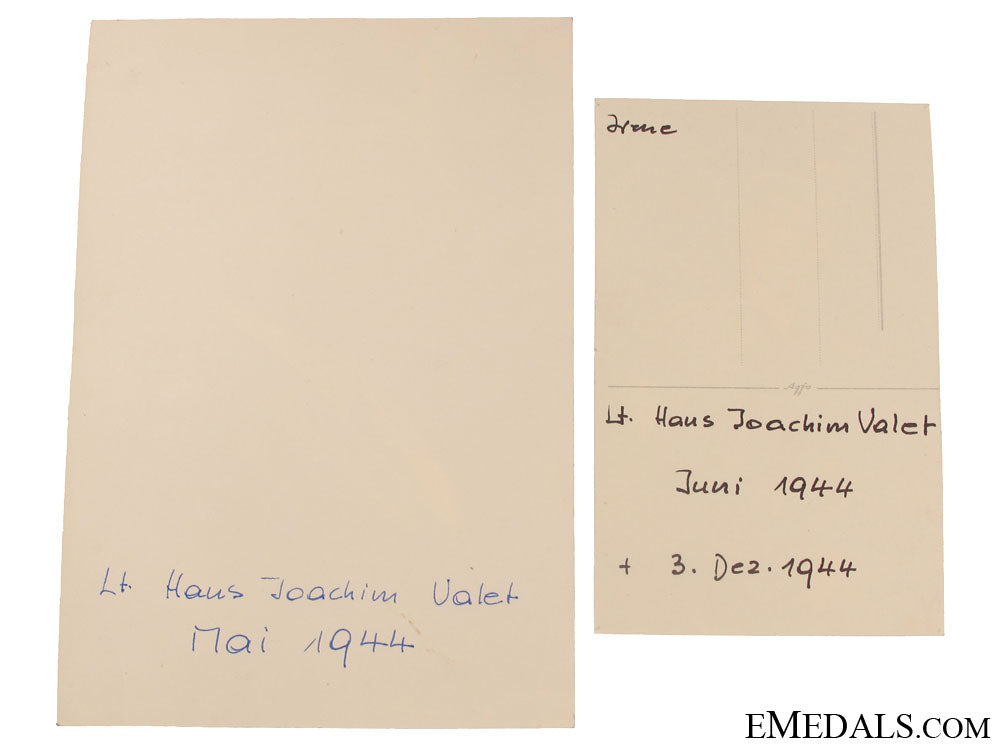 Lt. Hans Joachim Valet
Mai 1944
Irene
Agfa
Lt. Hans Joachim Valet
Juni 1944
+ 3. Dez. 1944
EMEDALS.COM